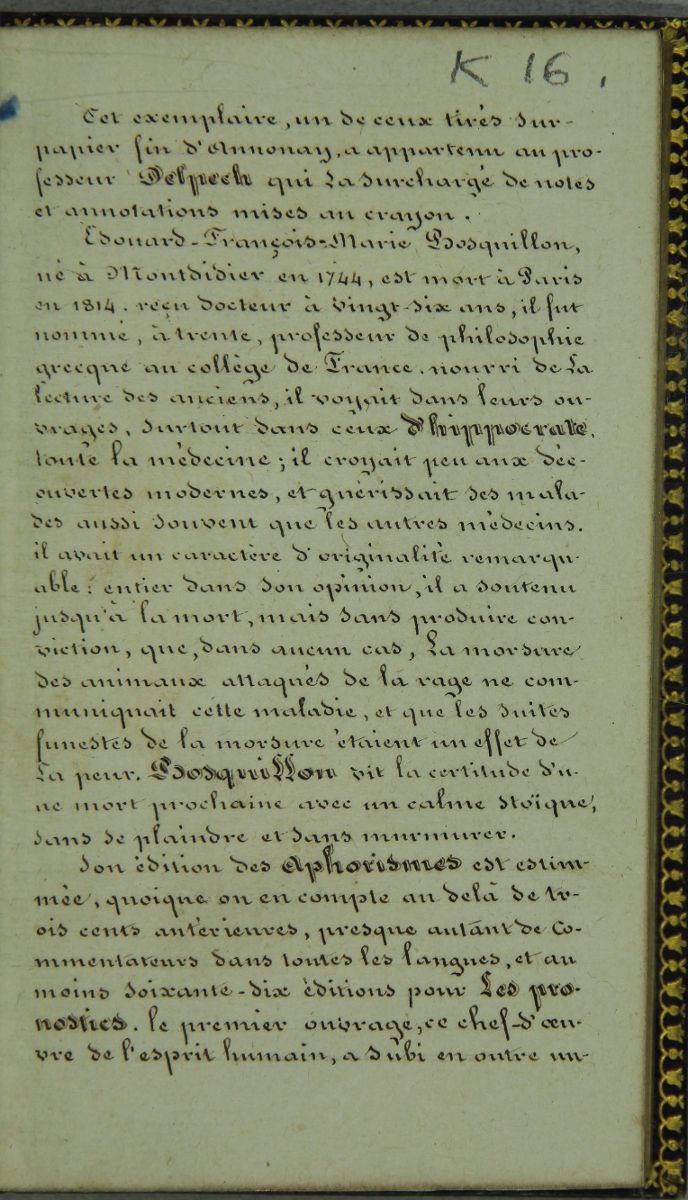 K 16.
Cet exemplaire, un de ceux tirés sur-
papier fin d'Annonay, a appartenu au pro-
fesseur Delpech qui la surchargé de notes
et annotations mises au crayon.
Edouard-François-Marie Bosquillon,
né à Montdidier en 1744, est mort à Paris
en 1814. reçu docteur à vingt-six ans, il fut
nommé, à trente, professeur de philosophie
grecque au collège de France. nourri de la
lecture des anciens, il voyait dans leurs ou-
vrages, surtout dans ceux d'hippocrate,
toute la médecine; il croyait peu aux déc-
ouvertes modernes, et guérissait ses mala-
des aussi souvent que les autres médecins.
il avait un caractère d'originalité remarqu-
able: entier dans son opinion, il a soutenu
jusqu'à la mort, mais sans produire con-
viction, que, dans aucun cas, la morsure
des animaux attaqués de la rage ne com-
muniquait cette maladie, et que les suites
funestes de la morsure étaient un effet de
la peur. Bosquillon vit la certitude d'u-
ne mort prochaine avec un calme stoïque,
sans se plaindre et sans murmurer.
Son édition des Aphorismes est estim-
mée, quoique on en compte au delà de tr-
ois cents antérieures, presque autant de co-
mmentateurs dans toutes les langues, et au
moins soixante-dix éditions pour Les pro-
nostics. le premier ouvrage, ce chef-d'œu-
vre de l'esprit humain, a subi en outre un-